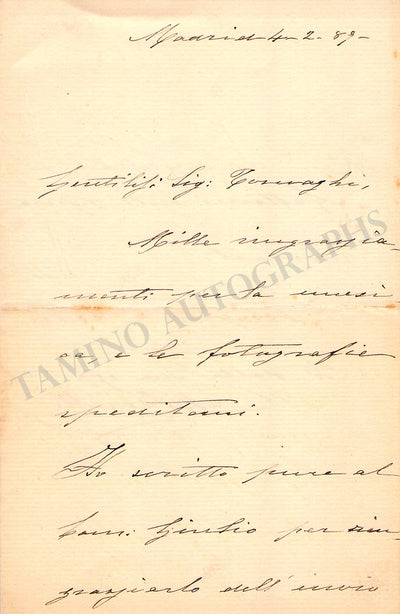 Madrid 4-2-89-
Gentilis: Sig: Tornaghi,
Mille ringrazia-
menti per la musi
ca e le fotografie
speditami.
Ho scritto pure al
Com: Giulio per rin-
graziarlo dell'invio
TAMINO AUTOGRAPHS